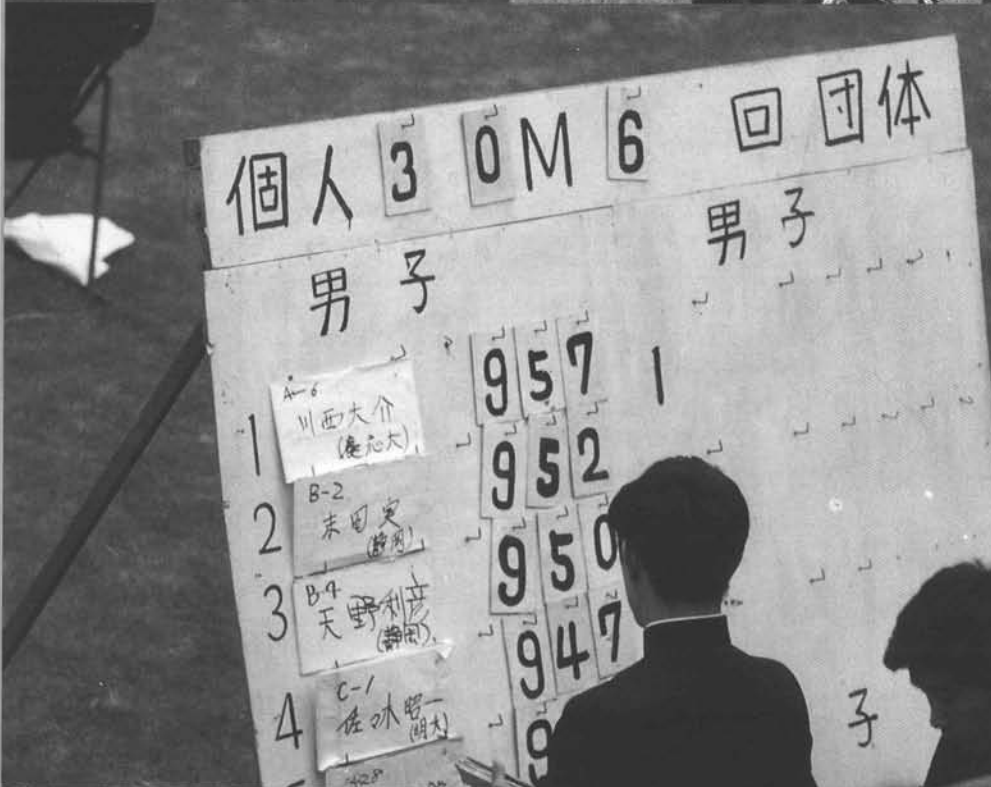 個人 30M 6 回 団体
男子 男子
1 A-6 川西大介 (慶応大) 957 1
2 B-2 末田実 (静岡) 952
3 B-4 天野利彦 (静岡) 950
4 C-1 佐々木昭一 (明大) 947
9
子